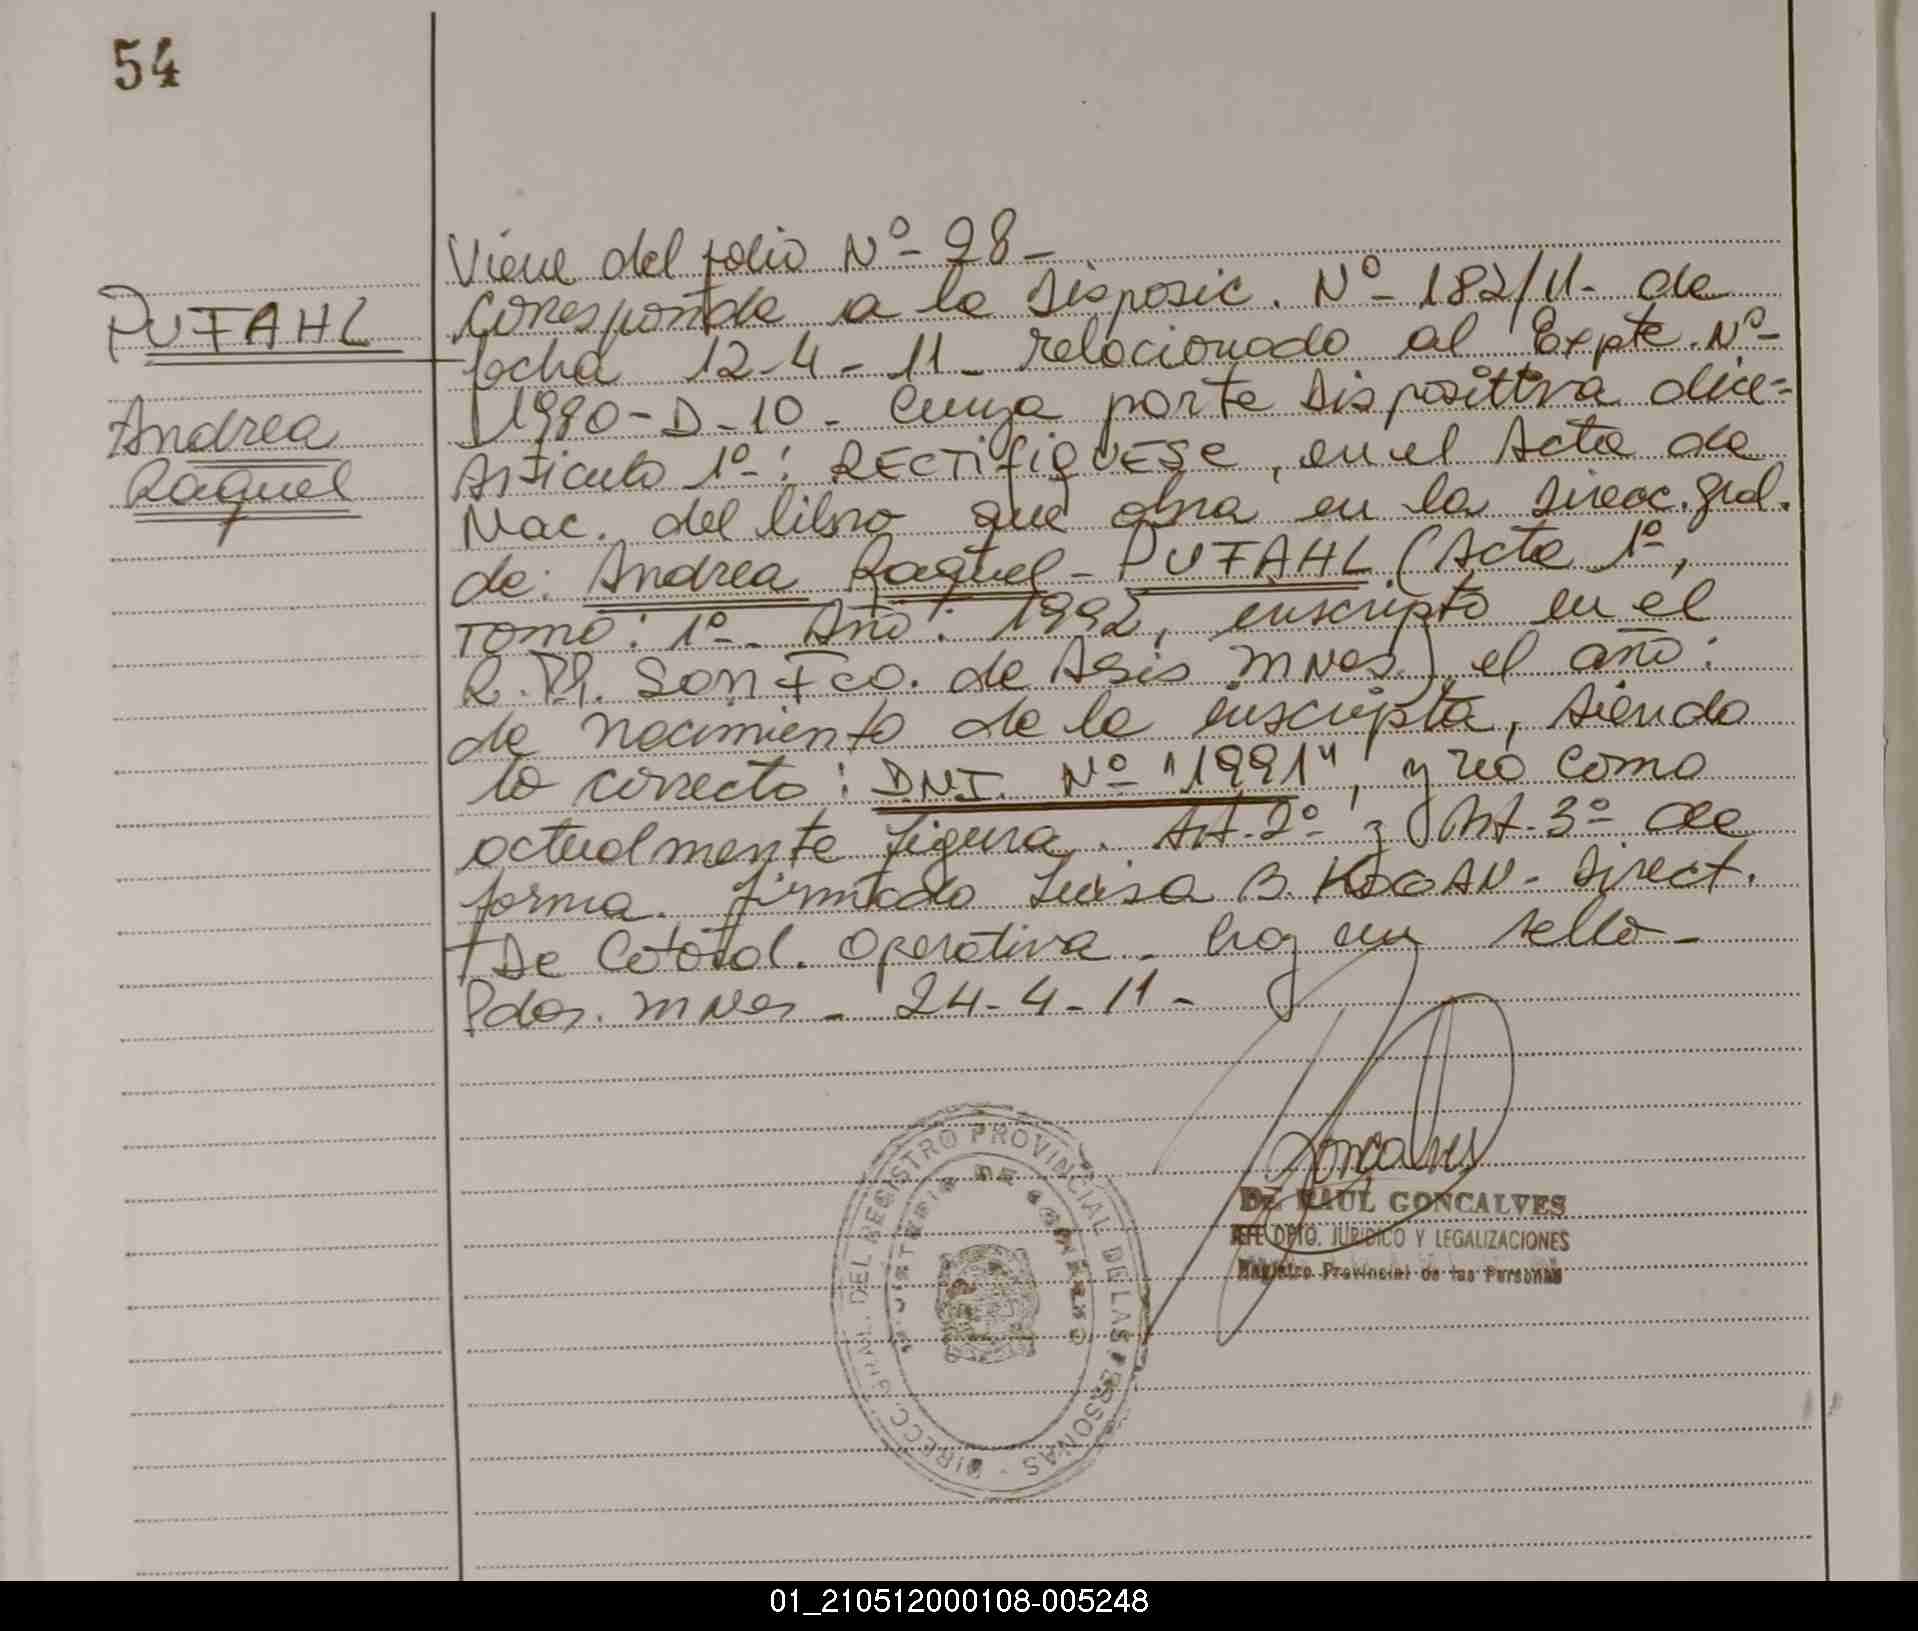 54
PUFAHL
Andrea
Raquel
Viene del folio Nº 28-
Corresponde a la Disposic. Nº 182/11- de
fecha 12-4-11- relacionado al Expte. Nº-
1980-D-10- Cuya parte Dispositiva dice=
Articulo 1º: RECTIFIQUESE, en el Acta de
Nac. del libro que obra en la Direcc. Gral.
de: Andrea Raquel - PUFAHL (Acta 1º,
Tomo: 1º- Año: 1992, inscripto en el
R.P. San Fco. de Asis Mnes.) el año:
de nacimiento de la inscripta, siendo
lo correcto: DNI. Nº "1991", y no como
actualmente figura. Art. 2º y Art. 3º de
forma. firmado Luisa B. KOGAN- Direct.
De Operativa- hay un sello-
Pdas. Mnes- 24-4-11-
DIRECC. GRAL. DEL REGISTRO PROVINCIAL DE LAS PERSONAS
MINISTERIO DE GOBIERNO
Goncalves
Dr. RAUL GONCALVES
JEFE DPTO. JURIDICO Y LEGALIZACIONES
Registro Provincial de las Personas
01_210512000108-005248